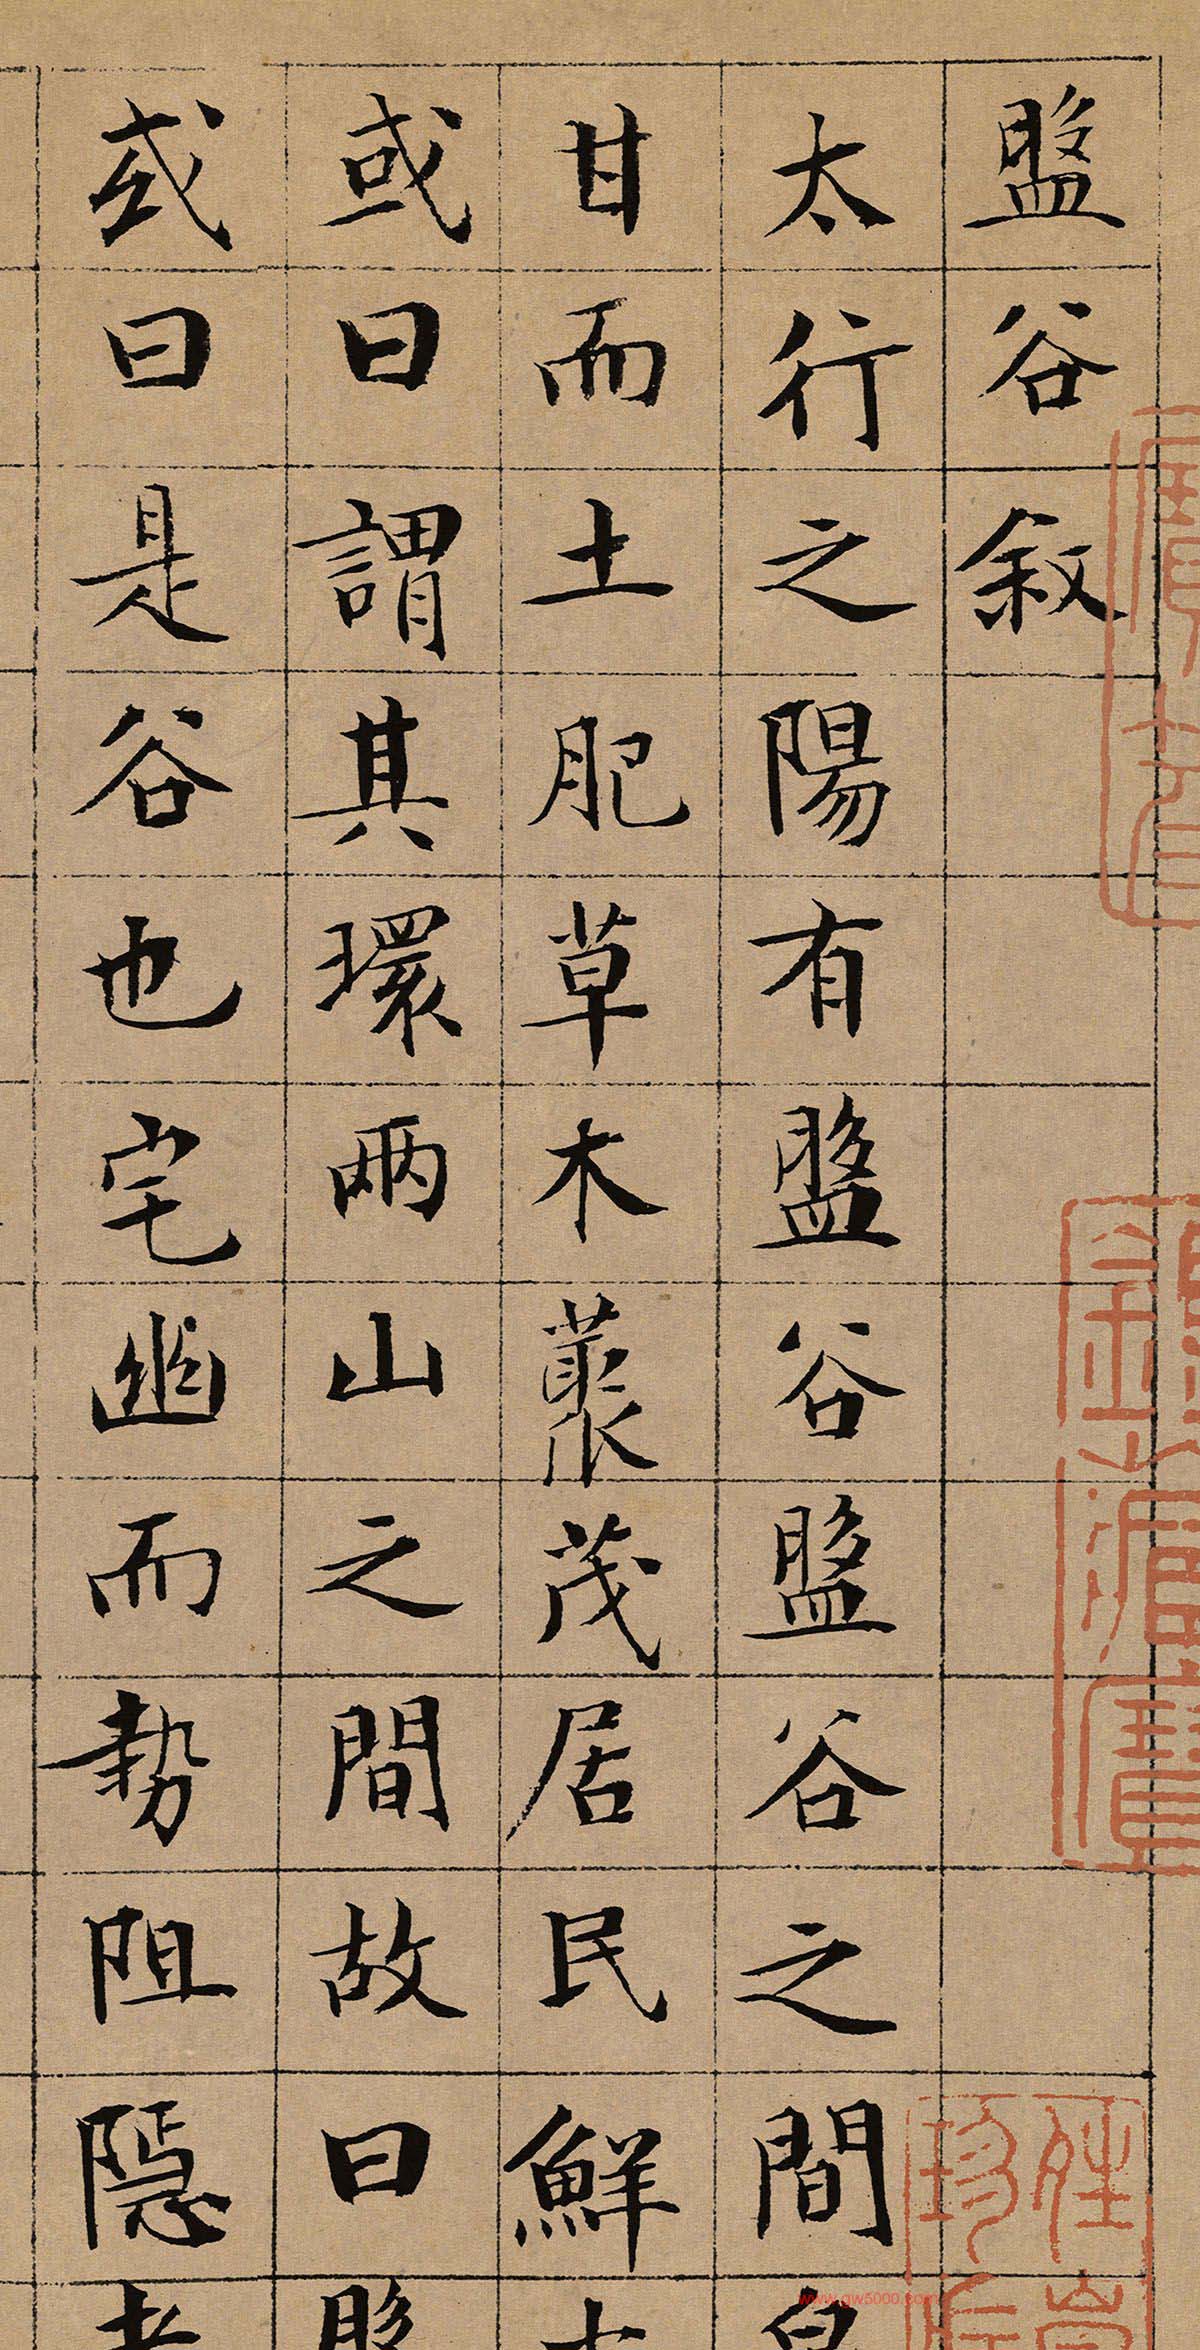 盤谷敘
太行之陽有盤谷盤谷之間
甘而土肥草木藂茂居民鮮
或曰謂其環兩山之間故曰
或曰是谷也宅幽而勢阻隱
www.gw5000.com